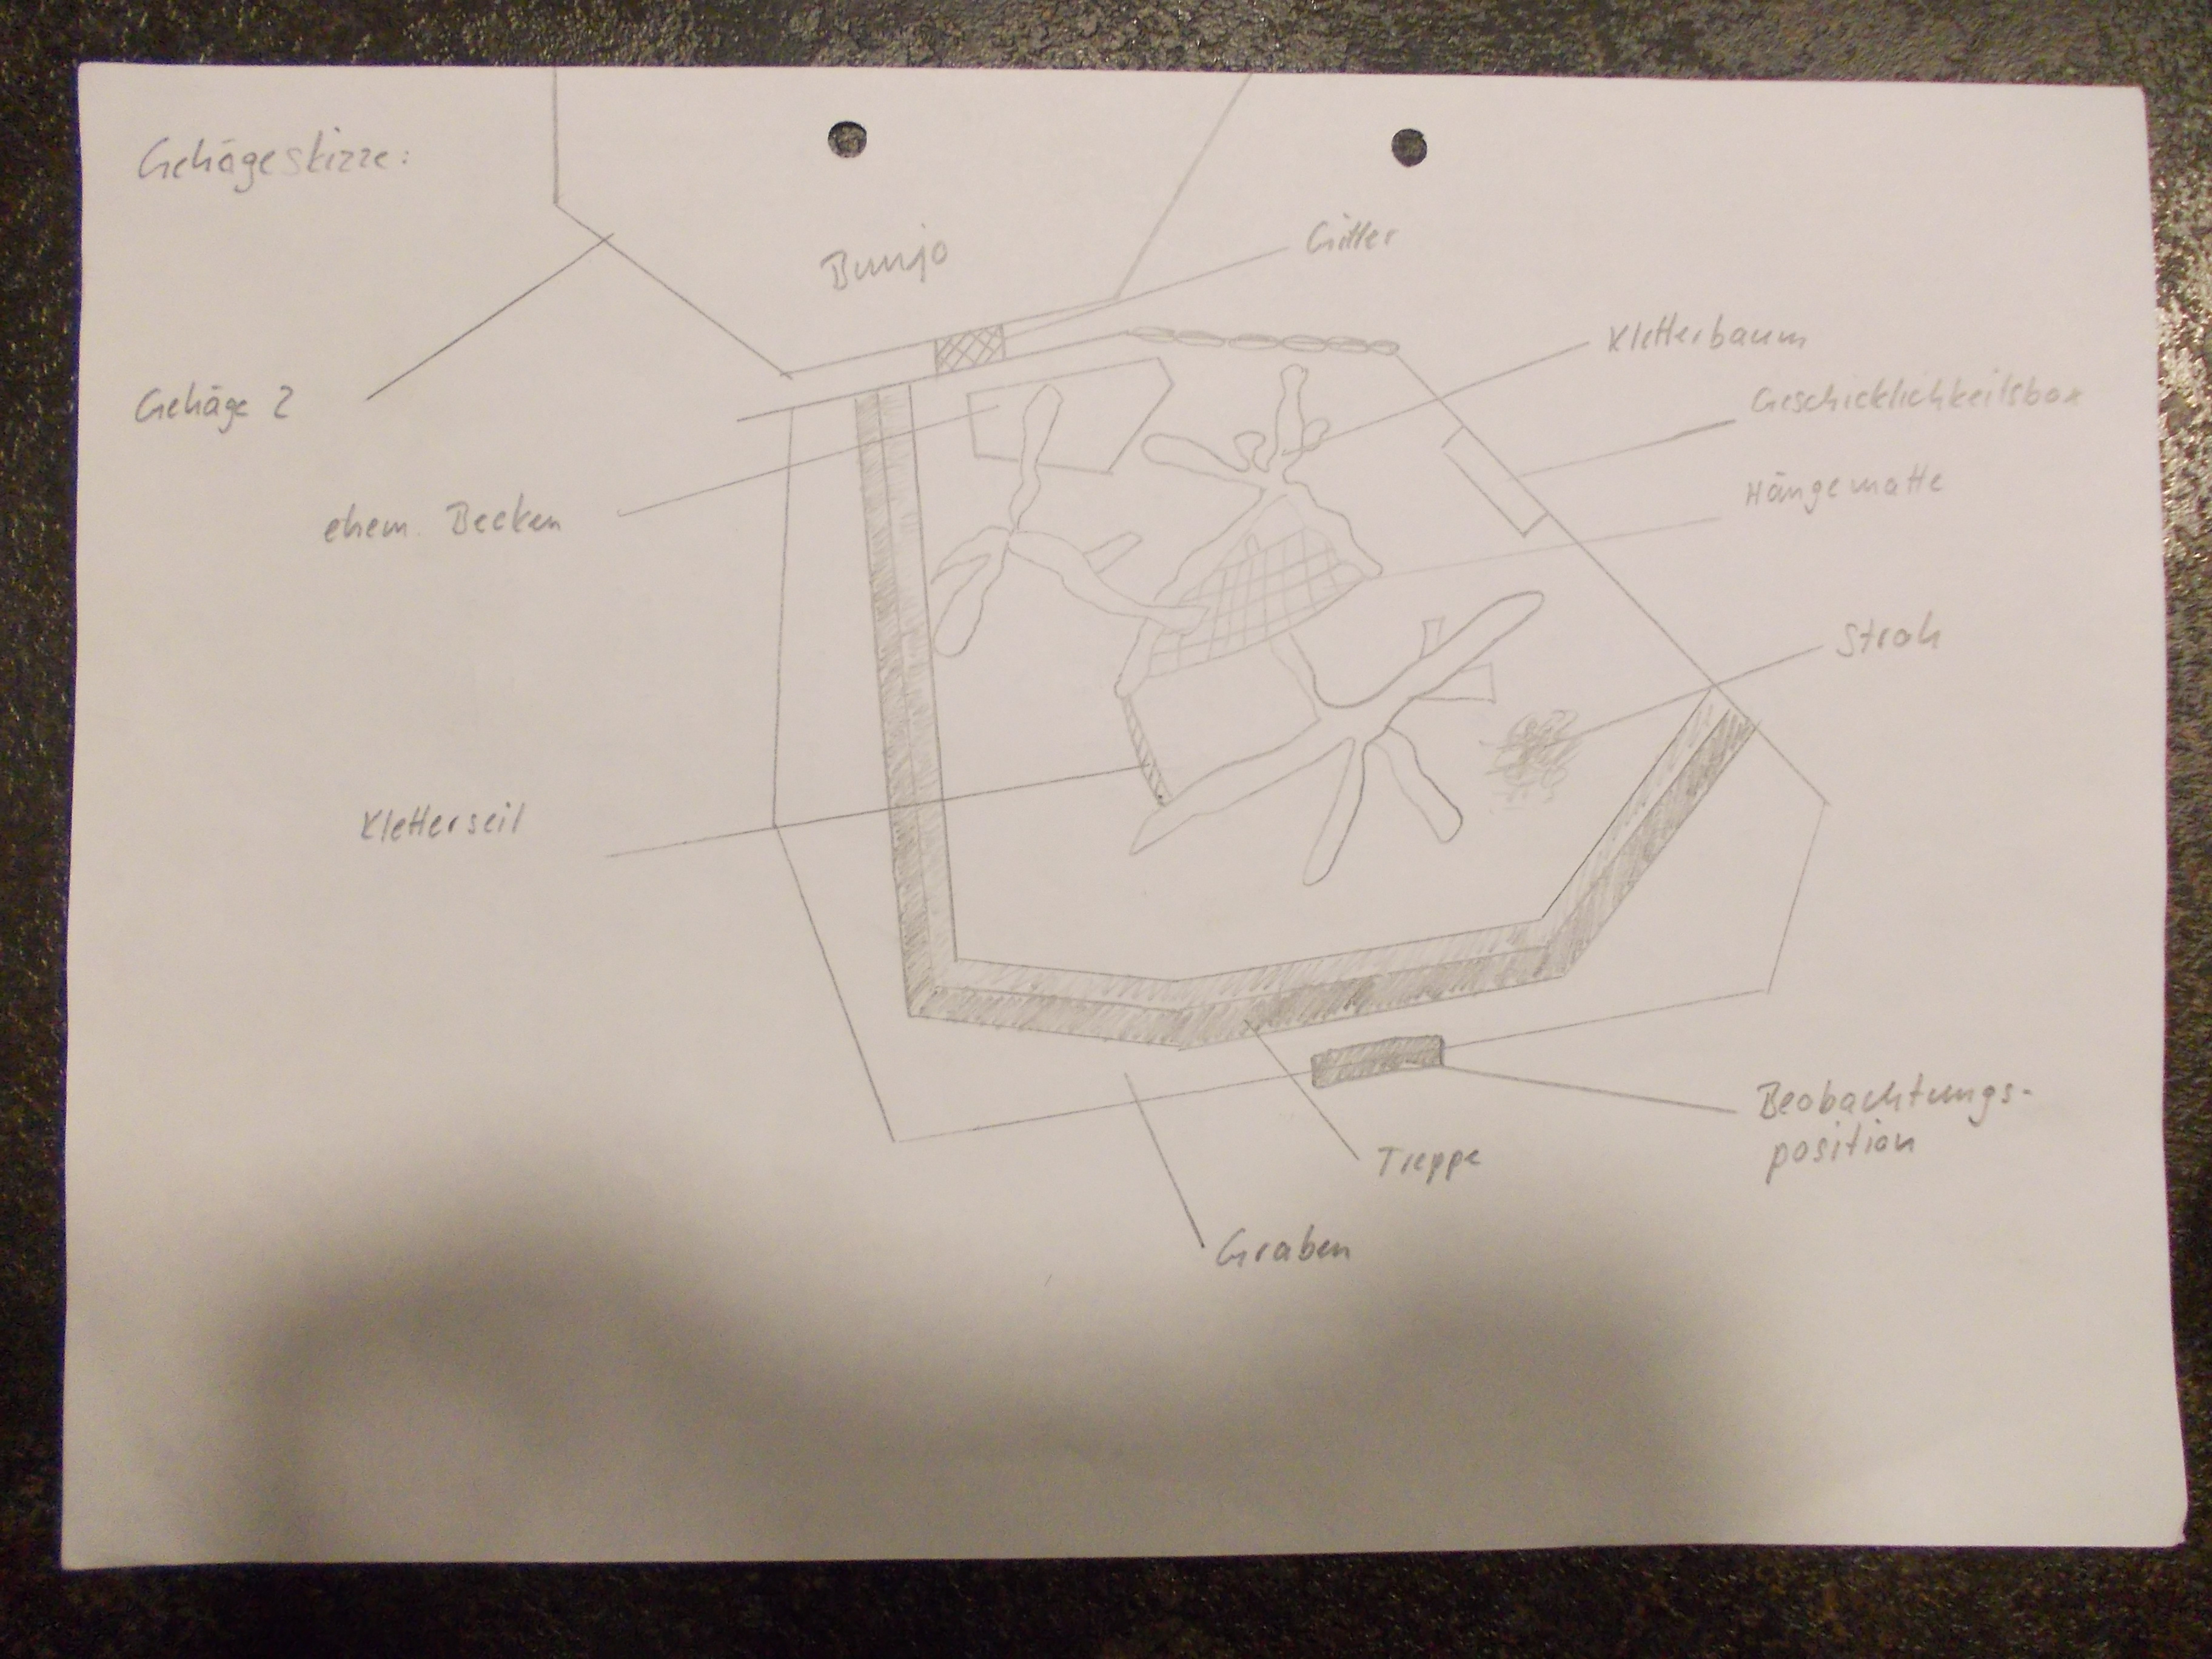 Gehägeskizze:
Bunjo
Gitter
Kletterbaum
Gehäge 2
Geschicklichkeitsbox
Hängematte
ehem. Becken
Stroh
Kletterseil
Beobachtungs-
position
Treppe
Graben